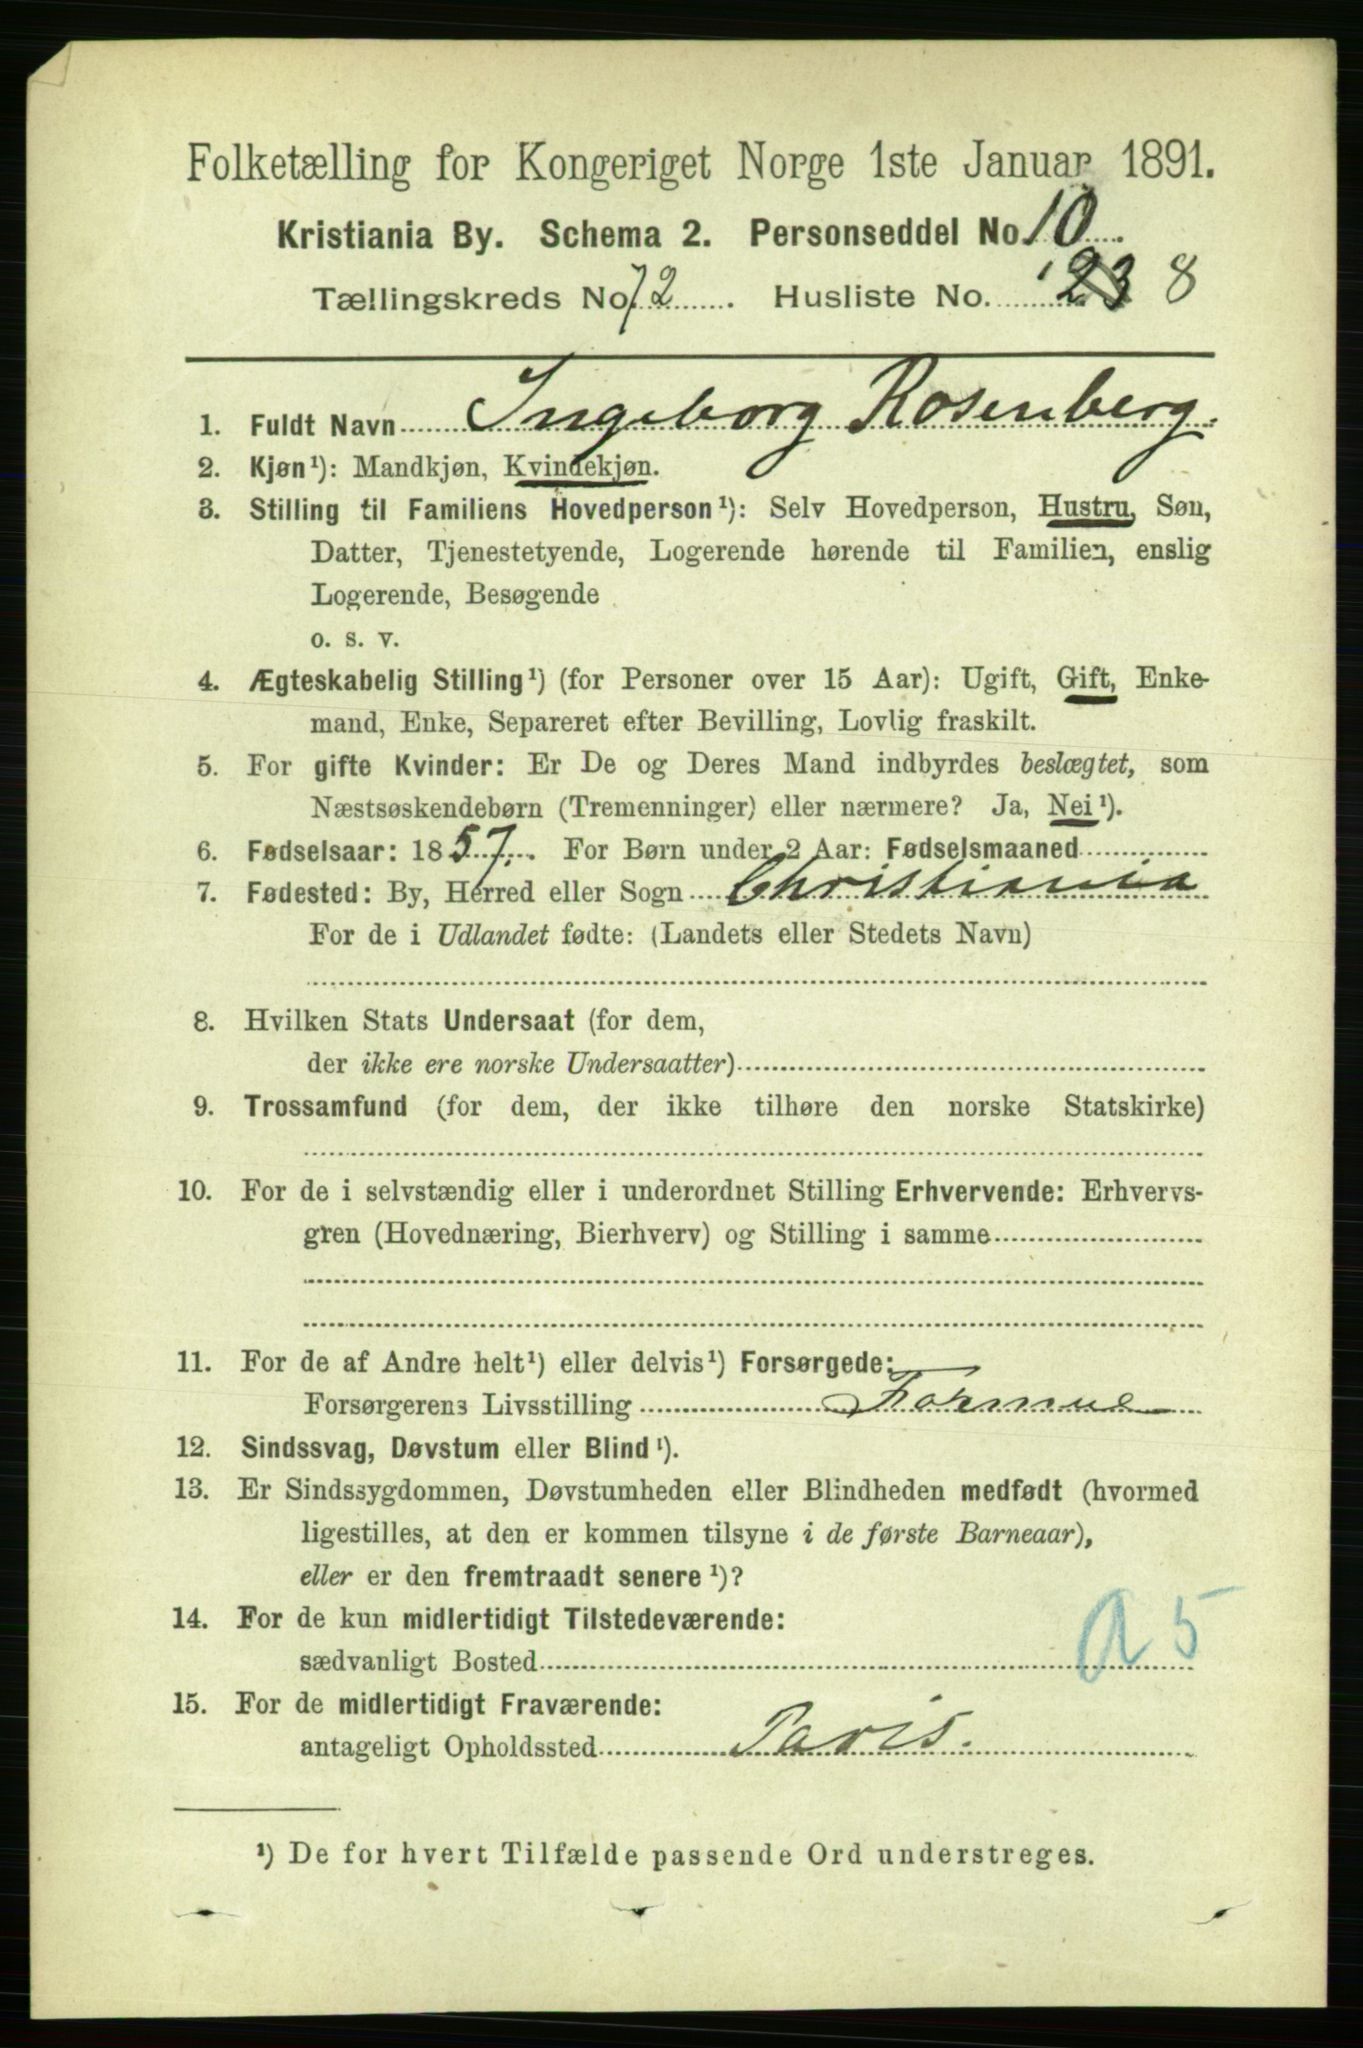 Folketælling for Kongeriget Norge 1ste Januar 1891.
Kristiania By. Schema 2. Personseddel No. 10
Tællingskreds No. 72. Husliste No. 23 8
1. Fuldt Navn Ingeborg Rosenberg.
2. Kjøn¹): Mandkjøn, Kvindekjøn.
3. Stilling til Familiens Hovedperson¹): Selv Hovedperson, Hustru, Søn,
Datter, Tjenestetyende, Logerende hørende til Familien, enslig
Logerende, Besøgende
o. s. v.
4. Ægteskabelig Stilling¹) (for Personer over 15 Aar): Ugift, Gift, Enke-
mand, Enke, Separeret efter Bevilling, Lovlig fraskilt.
5. For gifte Kvinder: Er De og Deres Mand indbyrdes beslægtet, som
Næstsøskendebørn (Tremenninger) eller nærmere? Ja, Nei¹).
6. Fødselsaar: 1857. For Børn under 2 Aar: Fødselsmaaned
7. Fødested: By, Herred eller Sogn Christiania
For de i Udlandet fødte: (Landets eller Stedets Navn)
8. Hvilken Stats Undersaat (for dem,
der ikke ere norske Undersaatter)
9. Trossamfund (for dem, der ikke tilhøre den norske Statskirke)
10. For de i selvstændig eller i underordnet Stilling Erhvervende: Erhvervs-
gren (Hovednæring, Bierhverv) og Stilling i samme
11. For de af Andre helt¹) eller delvis¹) Forsørgede:
Forsørgerens Livsstilling Formue
12. Sindssvag, Døvstum eller Blind¹).
13. Er Sindssygdommen, Døvstumheden eller Blindheden medfødt (hvormed
ligestilles, at den er kommen tilsyne i de første Barneaar),
eller er den fremtraadt senere¹)?
14. For de kun midlertidigt Tilstedeværende:
sædvanligt Bosted a 5
15. For de midlertidigt Fraværende:
antageligt Opholdssted Paris.
¹) De for hvert Tilfælde passende Ord understreges.